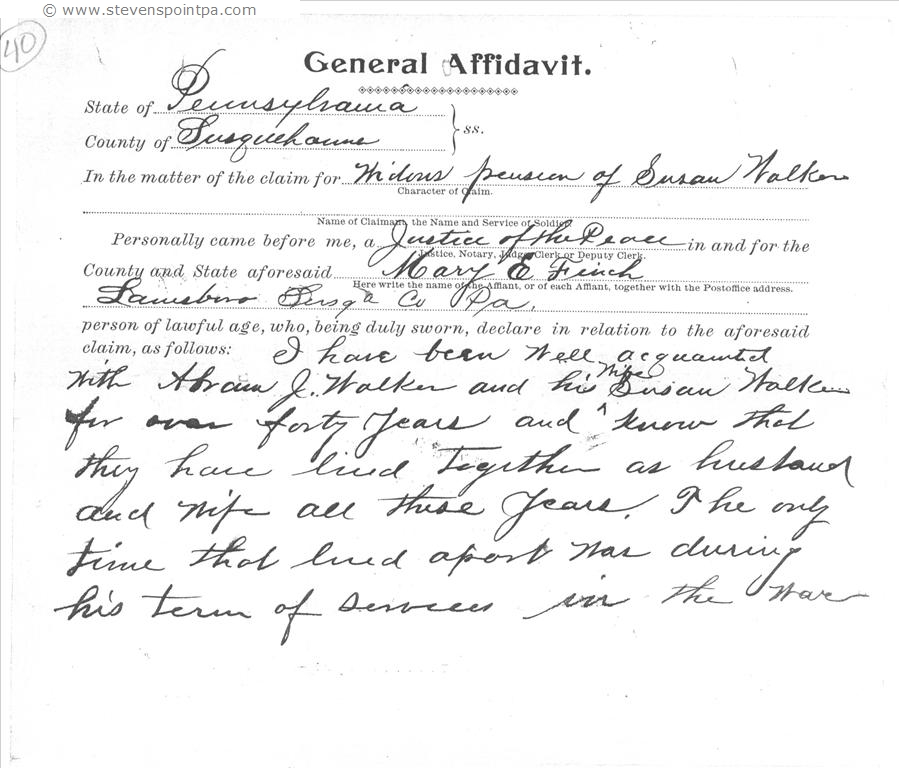 © www.stevenspointpa.com
40
General Affidavit.
State of Pennsylvania
County of Susquehanna } ss.
In the matter of the claim for Widows pension of Susan Walker
Character of Claim.
Name of Claimant, the Name and Service of Soldier.
Personally came before me, a Justice of the Peace in and for the
Justice, Notary, Judge, Clerk or Deputy Clerk.
County and State aforesaid Mary E Finch
Here write the name of the Affiant, or of each Affiant, together with the Postoffice address.
Lanesboro Susqa Co Pa,
person of lawful age, who, being duly sworn, declare in relation to the aforesaid
claim, as follows: I have been well acquainted
with Abram J. Walker and his wife Susan Walker
for over forty years and ^ know that
they have lived together as husband
and wife all these years. The only
time that lived apart was during
his term of services in the war